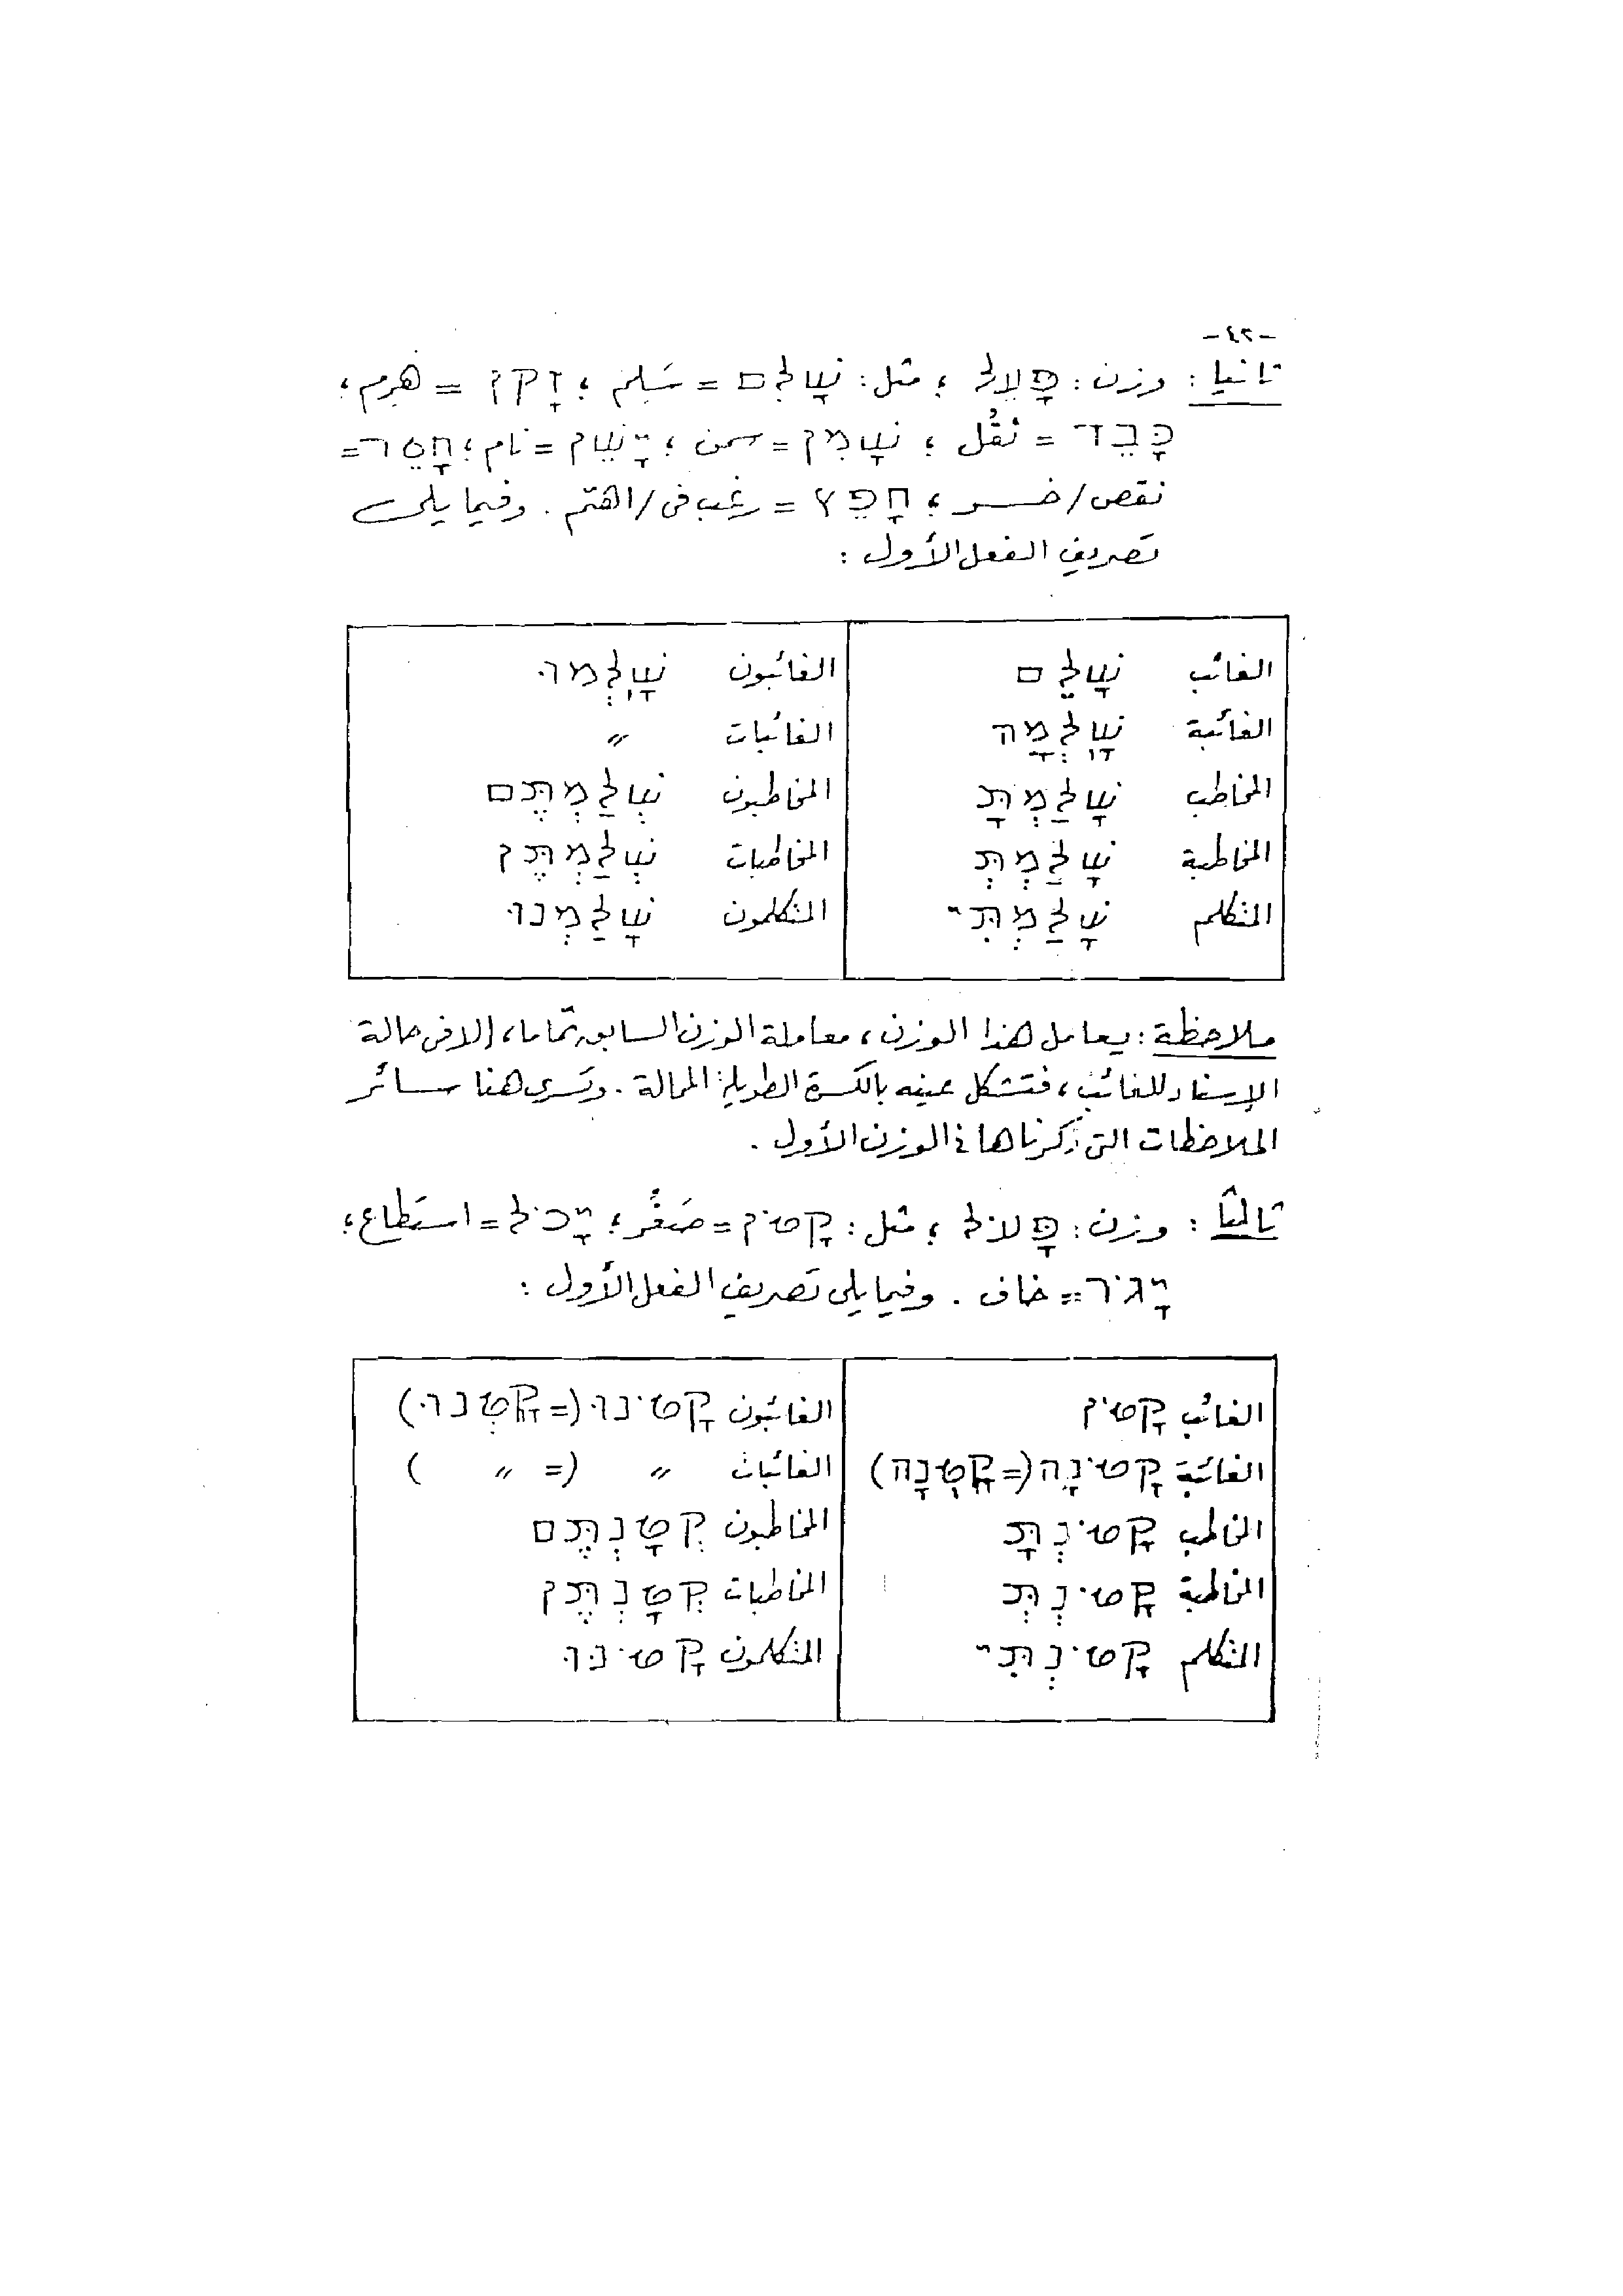 -٤٢-
ثانيا: وزن: פָּעֵל ؛ مثل: שָׁלֵם = سَلِم ؛ זָקֵן = هَرِم ؛
כָּבֵד = ثَقُل ؛ שָׁמֵן = سمن ؛ יָשֵׁן = نام ؛ חָסֵר =
نقص/خسر ؛ חָפֵץ = رغب فى/اهتم . وفيما يلى
تصريف الفعل الأول :
الغائب שָׁלֵם الغائبون שָׁלְמוּ
الغائبة שָׁלְמָה الغائبات 〃
المخاطب שָׁלַמְתָּ المخاطبون שְׁלַמְתֶּם
المخاطبة שָׁלַמְתְּ المخاطبات שְׁלַמְתֶּן
المتكلم שָׁלַמְתִּי المتكلمون שָׁלַמְנוּ
ملاحظة : يعامل هذا الوزن ، معاملة الوزن السابق تمّاما ، إلا فى حالة
الإسناد للغائب ، فتشكل عينه بالكسرة الطويلة الممالة . وتسرى هنا سائر
الملاحظات التى ذكرناها فى الوزن الأول .
ثالثا : وزن : פָּעֹל ؛ مثل : קָטֹן = صَغُر ؛ יָכֹל = استطاع ؛
יָגֹר = خاف . وفيما يلى تصريف الفعل الأول :
الغائب קָטֹן الغائبون קָטֹנוּ (= קָטְנוּ)
الغائبة קָטֹנָה (= קָטְנָה) الغائبات 〃 (= 〃 )
المخاطب קָטֹנְתָּ المخاطبون קְטָנְתֶּם
المخاطبة קָטֹנְתְּ المخاطبات קְטָנְתֶּן
المتكلم קָטֹנְתִּי المتكلمون קָטֹנּוּ